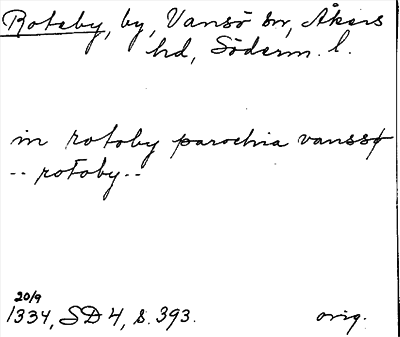 Roteby, by, Vansö sn, Åkers
hd, Söderm. l.
in rotoby parochia vanssø
-- rotoby --
20/9
1334, SD 4, s. 393. orig.